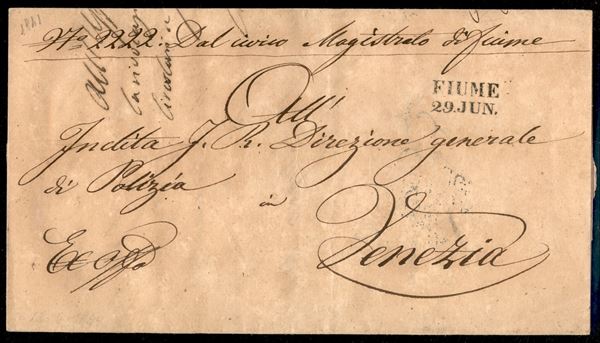 1841
No 2222: Dal civico Magistrato di fiume
FIUME
29.JUN.
All'
Inclita J. R. Direzione generale
di Polizia
in
Venezia
Ex offo